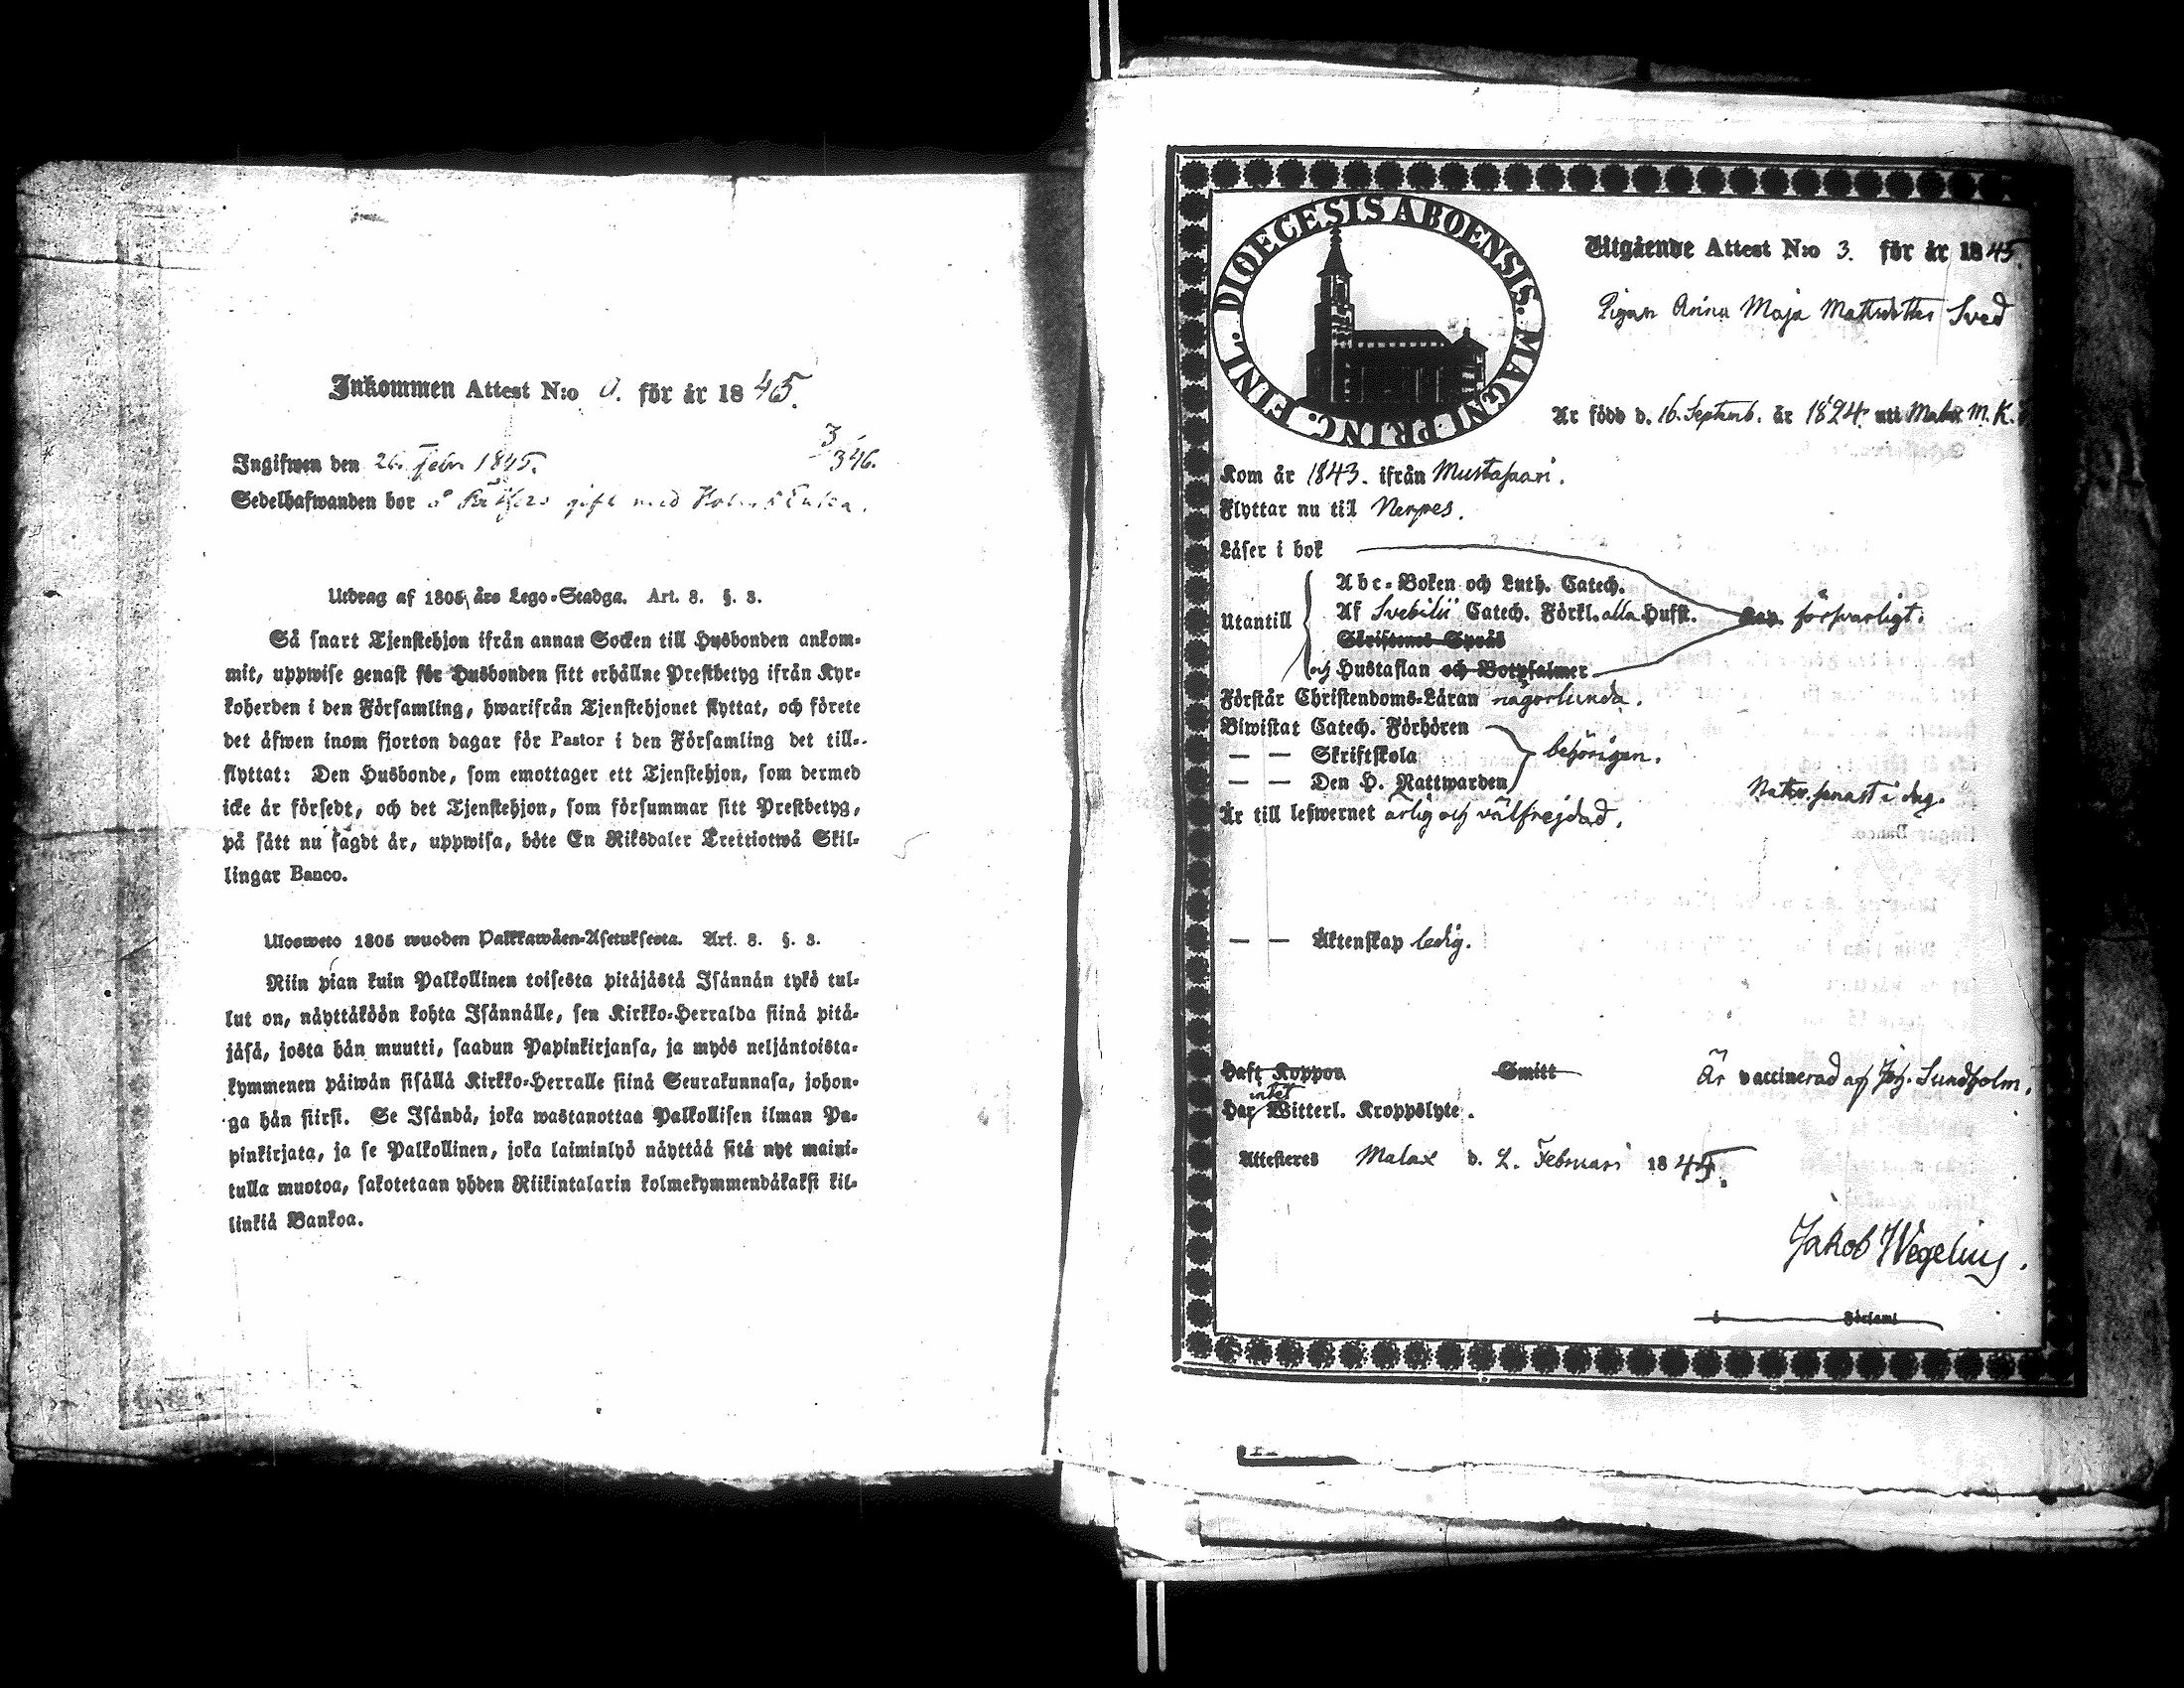 Inkommen Attest N:o för år 1845.
3/346.
Ingifwen den 26. Febr. 1845.
Sedelhafwanden bor å gift med
Utdrag af 1805 års Lego-Stadga. Art. 8. §. 3.
Så snart Tjenstehjon ifrån annan Socken till Husbonden ankom-
mit, uppwise genast för Husbonden sitt erhållne Prestbetyg ifrån Kyr-
koherden i den Församling, hwarifrån Tjenstehjonet flyttat, och förete
det äfwen inom fjorton dagar för Pastor i den Församling det till-
flyttat: Den Husbonde, som emottager ett Tjenstehjon, som dermed
icke är försedt, och det Tjenstehjon, som försummar sitt Prestbetyg,
på sätt nu sagdt är, uppwisa, böte En Riksdaler Trettiotwå Skil-
lingar Banco.
Ulosweto 1805 wuoden Palkkawäen-Asetuksesta. Art. 8. §. 3.
Niin pian kuin Palkollinen toisesta pitäjästä Isännän tykö tul-
lut on, näyttäköön kohta Isännälle, sen Kirkko-Herralda siinä pitä-
jäsä, josta hän muutti, saadun Papinkirjansa, ja myös neljäntoista-
kymmenen päiwän sisällä Kirkko-Herralle siinä Seurakunnasa, johon-
ga hän siirsi. Se Isändä, joka wastanottaa Palkollisen ilman Pa-
pinkirjata, ja se Palkollinen, joka laiminlyö näyttää sitä nyt maini-
tulla muotoa, sakotetaan yhden Riikintalarin kolmekymmendäkaksi kil-
linkiä Bankoa.
DIOECESIS ABOENSIS. MAGNI PRINC. FINL.
Utgående Attest N:o 3. för år 1845.
Pigan Anna Maja Mattsdotter Sved
Är född d. 16. Septemb. år 1824 uti Malax M. K.
Kom år 1843. ifrån Mustasaari.
Flyttar nu till Nerpes.
Läser i bok
Utantill
Abc-Boken och Luth. Catech.
Af Svebilii Catech. Förkl. alla Hufst. försvarligt.
Skriftenes Språk
och Hustaflan och Botpsalmer
Förstår Christendoms-Läran någorlunda.
Biwistat Catech. Förhören
— — Skriftskola behörigen.
— — Den H. Nattwarden
Nattv. senast i dag.
Är till lefwernet ärlig och välfrejdad.
— — Äktenskap ledig.
Haft Koppor Smitt Är vaccinerad af Joh. Sundholm.
intet
Har Witterl. Kroppslyte.
Attesteres Malax d. 2. Februari 1845.
Jakob Wegelius.
i Församl